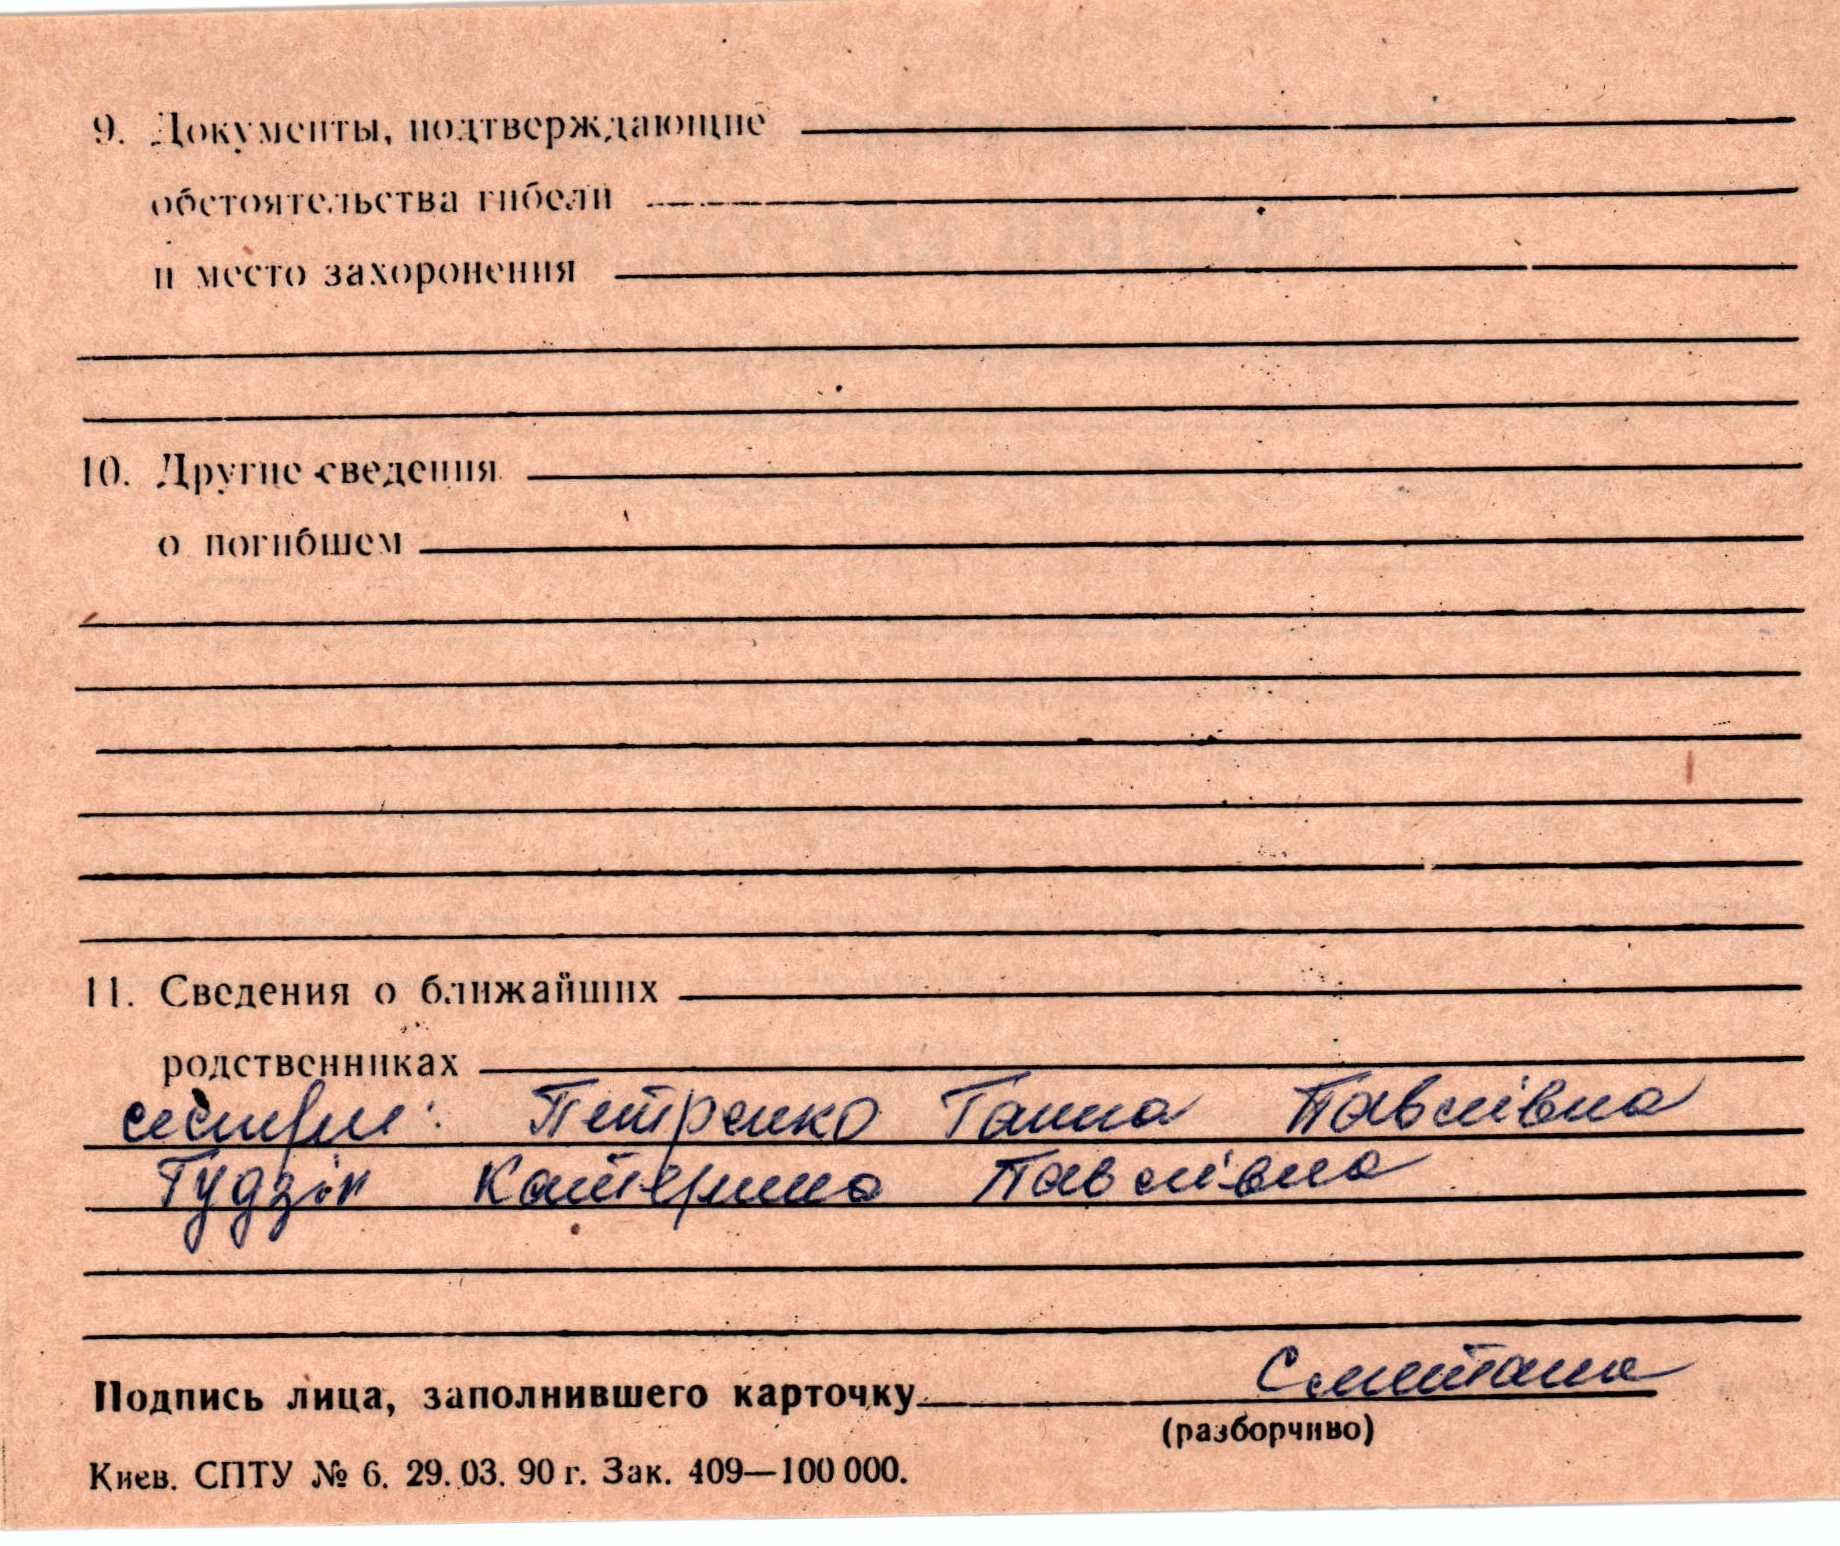 9. Документы, подтверждающие
обстоятельства гибели
и место захоронения
10. Другие сведения
о погибшем
11. Сведения о ближайших
родственниках
сестри: Петренко Ганна Павлівна
Гудзік Катерина Павлівна
Подпись лица, заполнившего карточку Сметана
(разборчиво)
Киев. СПТУ № 6. 29. 03. 90 г. Зак. 409—100 000.